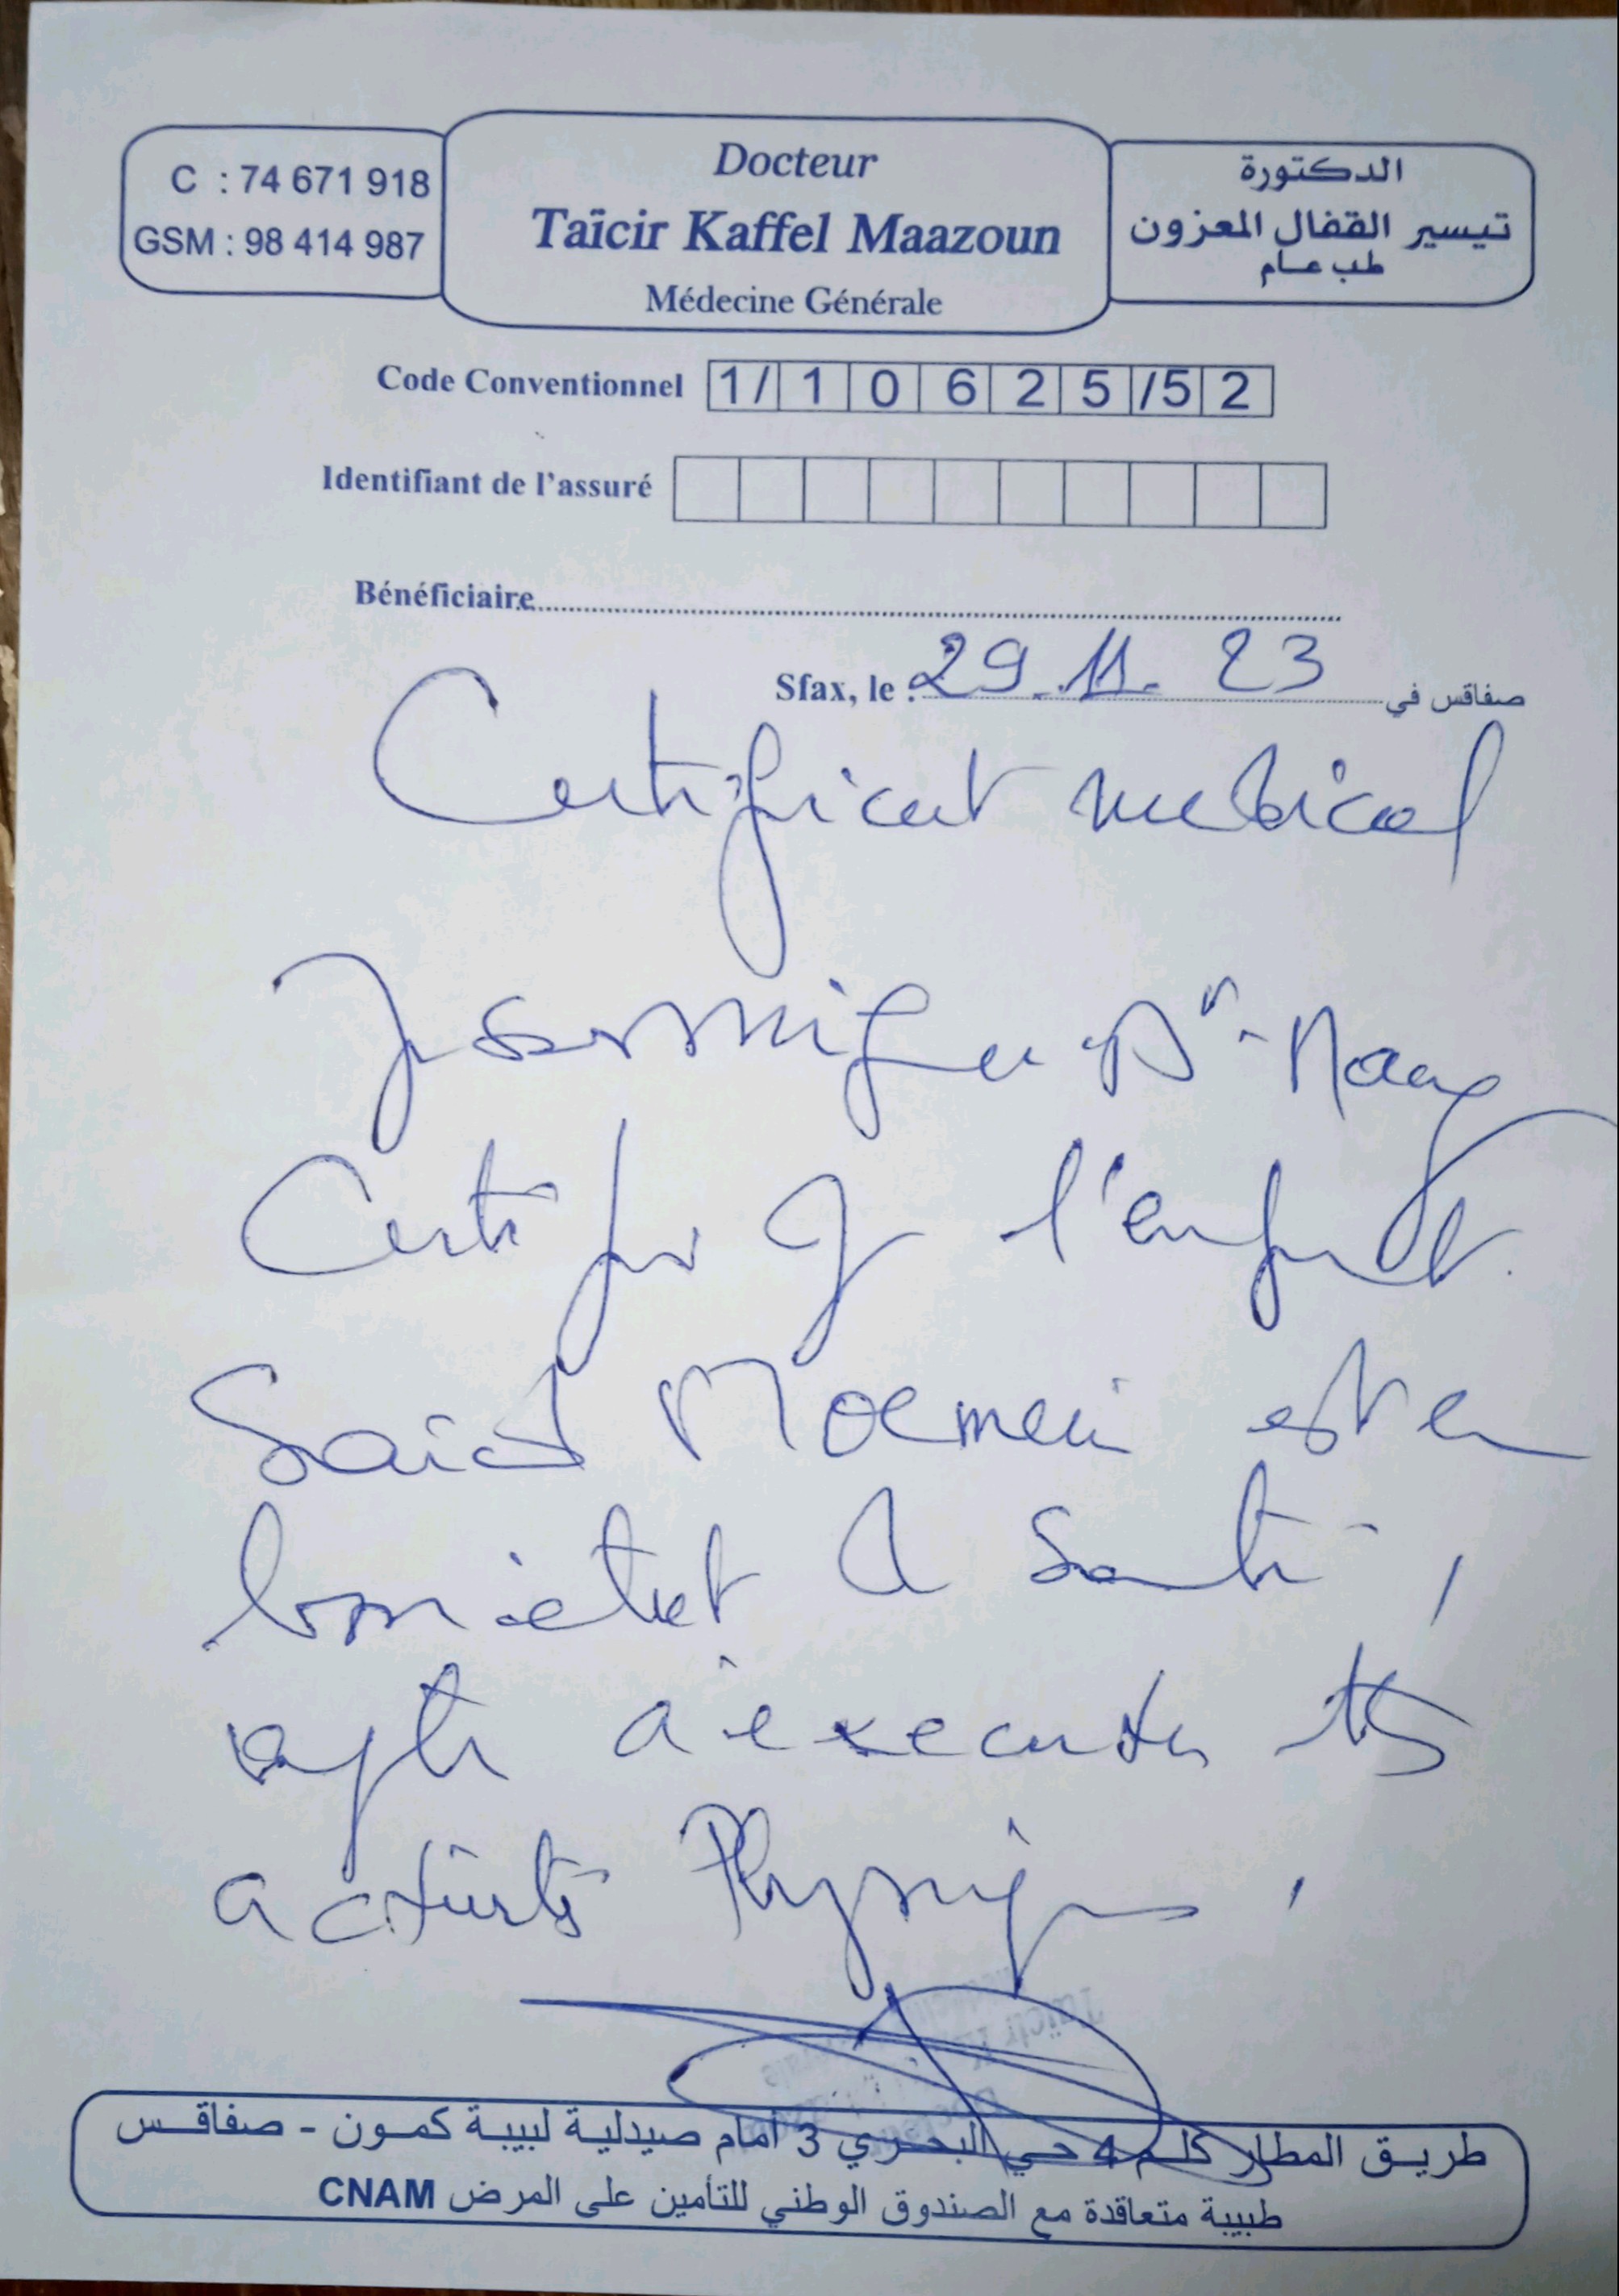 C : 74 671 918
GSM : 98 414 987
Docteur
Taïcir Kaffel Maazoun
Médecine Générale
الدكتورة
تيسير القفال المعزون
طب عام
Code Conventionnel 1/ 1 0 6 2 5 /5 2
Identifiant de l'assuré
Bénéficiaire
Sfax, le : 29.11.23 صفاقس في
Certificat medical
Je soussignée Dr
Certifie q l'enfant
Said Moemen est en
bon état de santé,
apte à éxecuter ttes
activités Physiques.
طريق المطار كلم 4 حي البحري 3 أمام صيدلية لبيبة كمون - صفاقس
طبيبة متعاقدة مع الصندوق الوطني للتأمين على المرض CNAM